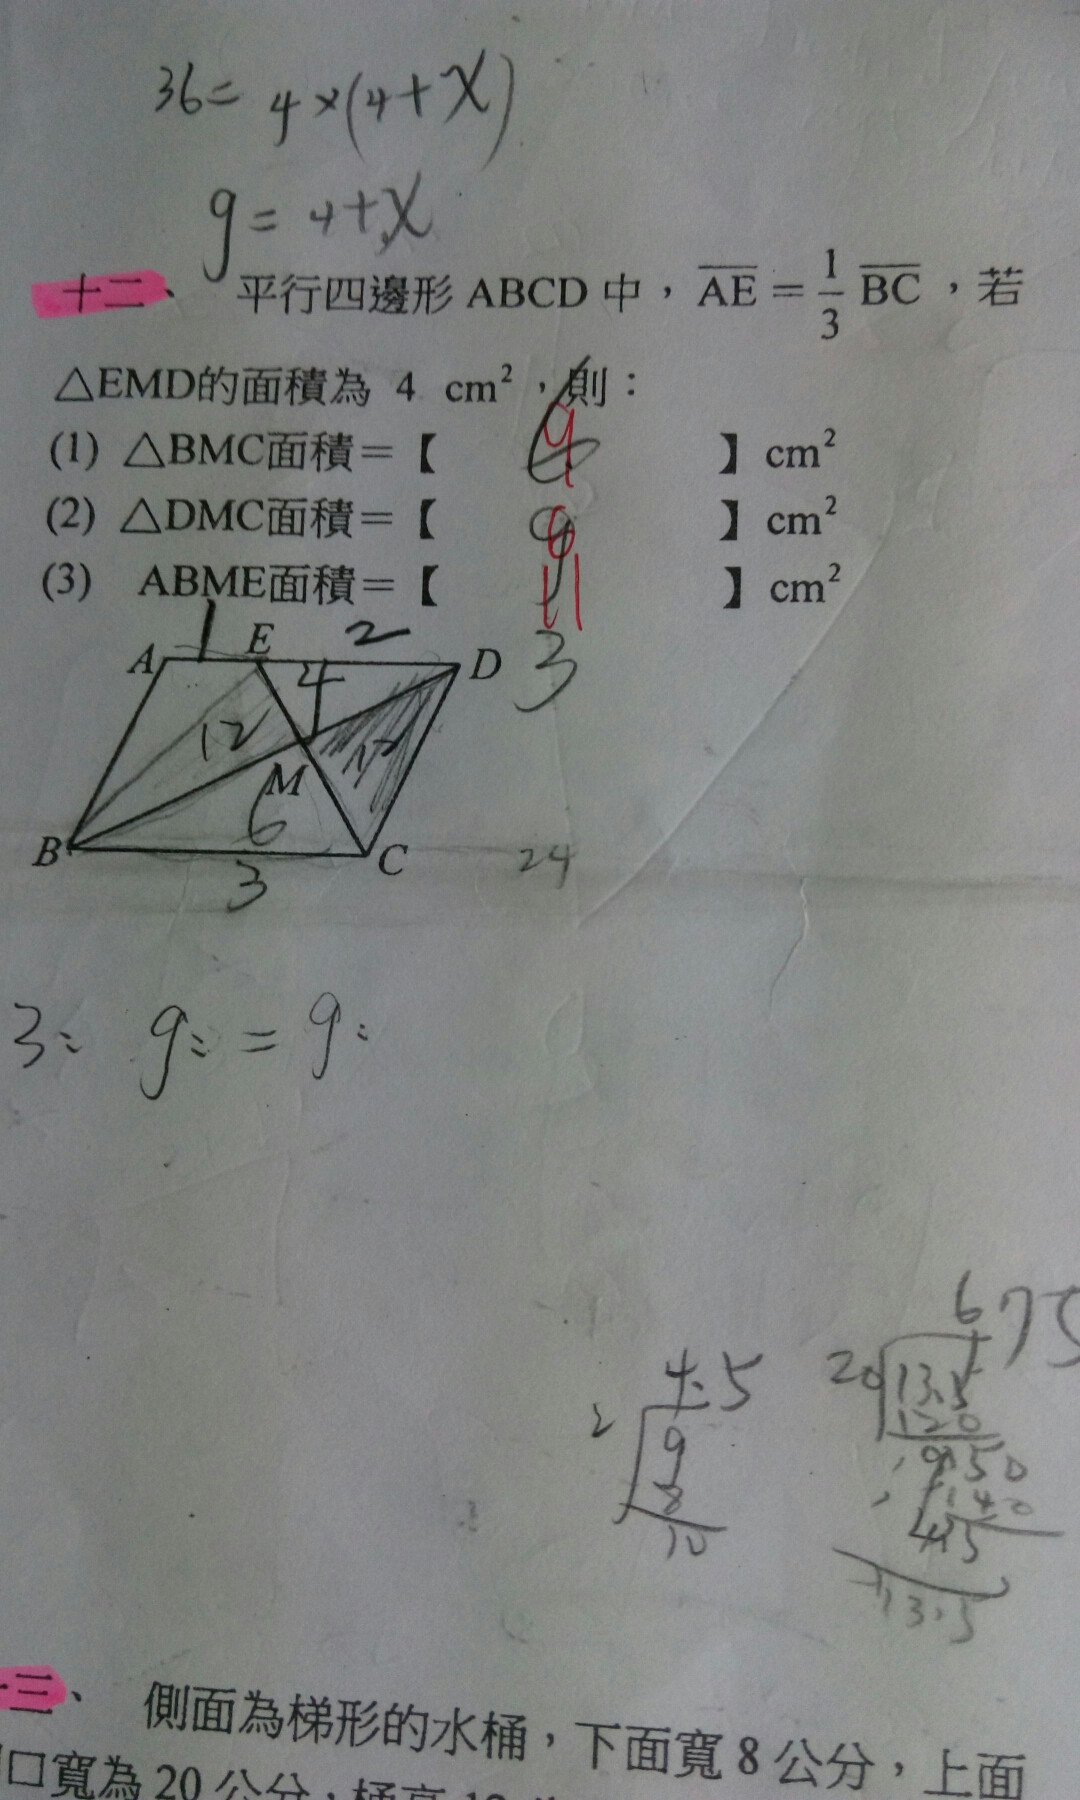 36= 4×(4+X)
9= 4+X
十二、 平行四邊形 ABCD 中，AE = 1/3 BC ，若
△EMD的面積為 4 cm²，則：
(1) △BMC面積＝【 9 】cm²
(2) △DMC面積＝【 6 】cm²
(3) ABME面積＝【 11 】cm²
1 2
A E D 3
4
12 12
M
6
B C 24
3
3: 9: = 9:
675
4.5 20 13.5
2 9 120
8 150
10 140
13.5
三、 側面為梯形的水桶，下面寬 8 公分，上面
口寬為 20 公分，桶高